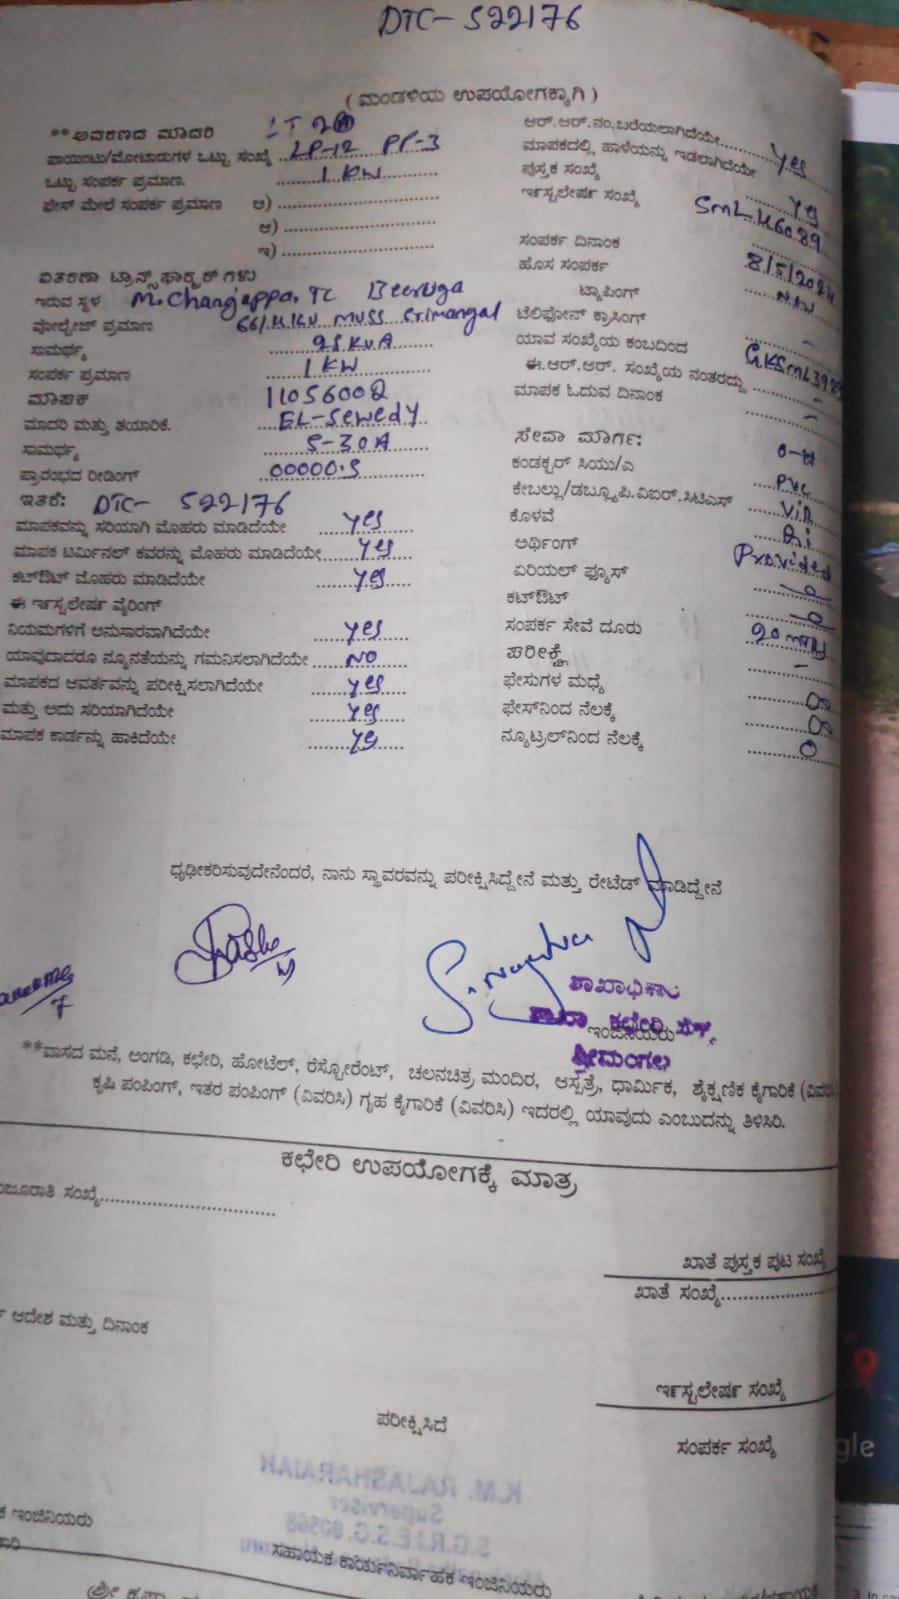 DTC- 522176
( ಮಂಡಳಿಯ ಉಪಯೋಗಕ್ಕಾಗಿ )
**ಅವಕರಣದ ಮಾದರಿ LT 2
ಪಾಯಿಂಟು/ಮೋಟಾರುಗಳ ಒಟ್ಟು ಸಂಖ್ಯೆ LP-12 PP-3
ಒಟ್ಟು ಸಂಪರ್ಕ ಪ್ರಮಾಣ. 1 KW
ಫೇಸ್ ಮೇಲೆ ಸಂಪರ್ಕ ಪ್ರಮಾಣ ಅ)
ಆ)
ಇ)
ವಿತರಣಾ ಟ್ರಾನ್ಸ್‌ಫಾರ್ಮರ್‌ಗಳು
ಇರುವ ಸ್ಥಳ M. Changappa. TC Beeruga
ವೋಲ್ಟೇಜ್ ಪ್ರಮಾಣ 66/11 KV MUSS Srimangal
ಸಾಮರ್ಥ್ಯ 25 KVA
ಸಂಪರ್ಕ ಪ್ರಮಾಣ 1 KW
ಮಾಪಕ 11056002
ಮಾದರಿ ಮತ್ತು ತಯಾರಿಕೆ. EL-Sewedy
ಸಾಮರ್ಥ್ಯ 5-30A
ಪ್ರಾರಂಭದ ರೀಡಿಂಗ್ 00000.5
ಇತರೆ: DTC- 522176
ಮಾಪಕವನ್ನು ಸರಿಯಾಗಿ ಮೊಹರು ಮಾಡಿದೆಯೇ Yes
ಮಾಪಕ ಟರ್ಮಿನಲ್ ಕವರನ್ನು ಮೊಹರು ಮಾಡಿದೆಯೇ Yes
ಕಟ್‌ಔಟ್ ಮೊಹರು ಮಾಡಿದೆಯೇ Yes
ಈ ಇನ್‌ಸ್ಟಲೇಷನ್ ವೈರಿಂಗ್
ನಿಯಮಗಳಿಗೆ ಅನುಸಾರವಾಗಿದೆಯೇ Yes
ಯಾವುದಾದರೂ ನ್ಯೂನತೆಯನ್ನು ಗಮನಿಸಲಾಗಿದೆಯೇ NO
ಮಾಪಕದ ಆವರ್ತವನ್ನು ಪರೀಕ್ಷಿಸಲಾಗಿದೆಯೇ Yes
ಮತ್ತು ಅದು ಸರಿಯಾಗಿದೆಯೇ Yes
ಮಾಪಕ ಕಾರ್ಡನ್ನು ಹಾಕಿದೆಯೇ Yes
ಆರ್.ಆರ್.ನಂ.ಬರೆಯಲಾಗಿದೆಯೇ Yes
ಮಾಪಕದಲ್ಲಿ ಹಾಳೆಯನ್ನು ಇಡಲಾಗಿದೆಯೇ Yes
ಪುಸ್ತಕ ಸಂಖ್ಯೆ
ಇನ್‌ಸ್ಟಲೇಷನ್ ಸಂಖ್ಯೆ SML 46089
ಸಂಪರ್ಕ ದಿನಾಂಕ 8/5/2024
ಹೊಸ ಸಂಪರ್ಕ New
ಟ್ಯಾಪಿಂಗ್
ಟೆಲಿಫೋನ್ ಕ್ರಾಸಿಂಗ್ -
ಯಾವ ಸಂಖ್ಯೆಯ ಕಂಬದಿಂದ
ಈ.ಆರ್.ಆರ್. ಸಂಖ್ಯೆಯ ನಂತರದ್ದು -
ಮಾಪಕ ಓದುವ ದಿನಾಂಕ -
ಸೇವಾ ಮಾರ್ಗ:
ಕಂಡಕ್ಟರ್ ಸಿಯು/ಎ
ಕೇಬಲ್ಲು/ಡಬ್ಲ್ಯೂಪಿ.ವಿಐರ್.ಸಿಟಿಎಸ್ PVC
ಕೊಳವೆ VIR
ಅರ್ಥಿಂಗ್ Provided
ಏರಿಯಲ್ ಫ್ಯೂಸ್
ಕಟ್‌ಔಟ್
ಸಂಪರ್ಕ ಸೇವೆ ದೂರು
ಪರೀಕ್ಷೆ -
ಫೇಸುಗಳ ಮಧ್ಯೆ ∞
ಫೇಸ್‌ನಿಂದ ನೆಲಕ್ಕೆ ∞
ನ್ಯೂಟ್ರಲ್‌ನಿಂದ ನೆಲಕ್ಕೆ 0
ಧೃಢೀಕರಿಸುವುದೇನೆಂದರೆ, ನಾನು ಸ್ಥಾವರವನ್ನು ಪರೀಕ್ಷಿಸಿದ್ದೇನೆ ಮತ್ತು ರೇಟೆಡ್ ಮಾಡಿದ್ದೇನೆ
ಶಾಖಾಧಿಕಾರಿ
ಶಾಖಾ ಕಛೇರಿ
ಇಂಜಿನಿಯರು
ಶ್ರೀಮಂಗಲ
**ವಾಸದ ಮನೆ, ಅಂಗಡಿ, ಕಛೇರಿ, ಹೋಟೆಲ್, ರೆಸ್ಟೋರೆಂಟ್, ಚಲನಚಿತ್ರ ಮಂದಿರ, ಆಸ್ಪತ್ರೆ, ಧಾರ್ಮಿಕ, ಶೈಕ್ಷಣಿಕ ಕೈಗಾರಿಕೆ (ವಿವರಿ
ಕೃಷಿ ಪಂಪಿಂಗ್, ಇತರ ಪಂಪಿಂಗ್ (ವಿವರಿಸಿ) ಗೃಹ ಕೈಗಾರಿಕೆ (ವಿವರಿಸಿ) ಇದರಲ್ಲಿ ಯಾವುದು ಎಂಬುದನ್ನು ತಿಳಿಸಿರಿ.
ಕಛೇರಿ ಉಪಯೋಗಕ್ಕೆ ಮಾತ್ರ
ಂಜೂರಾತಿ ಸಂಖ್ಯೆ
ಖಾತೆ ಪುಸ್ತಕ ಪುಟ ಸಂಖ್ಯೆ
ಖಾತೆ ಸಂಖ್ಯೆ
ಆದೇಶ ಮತ್ತು ದಿನಾಂಕ
ಇನ್‌ಸ್ಟಲೇಷನ್ ಸಂಖ್ಯೆ
ಪರೀಕ್ಷಿಸಿದೆ
ಸಂಪರ್ಕ ಸಂಖ್ಯೆ
K.M. RAJASHARAIAH
Supervisor
ಕ ಇಂಜಿನಿಯರು
ಸಹಾಯಕ ಕಾರ್ಯನಿರ್ವಾಹಕ ಇಂಜಿನಿಯರು
gle